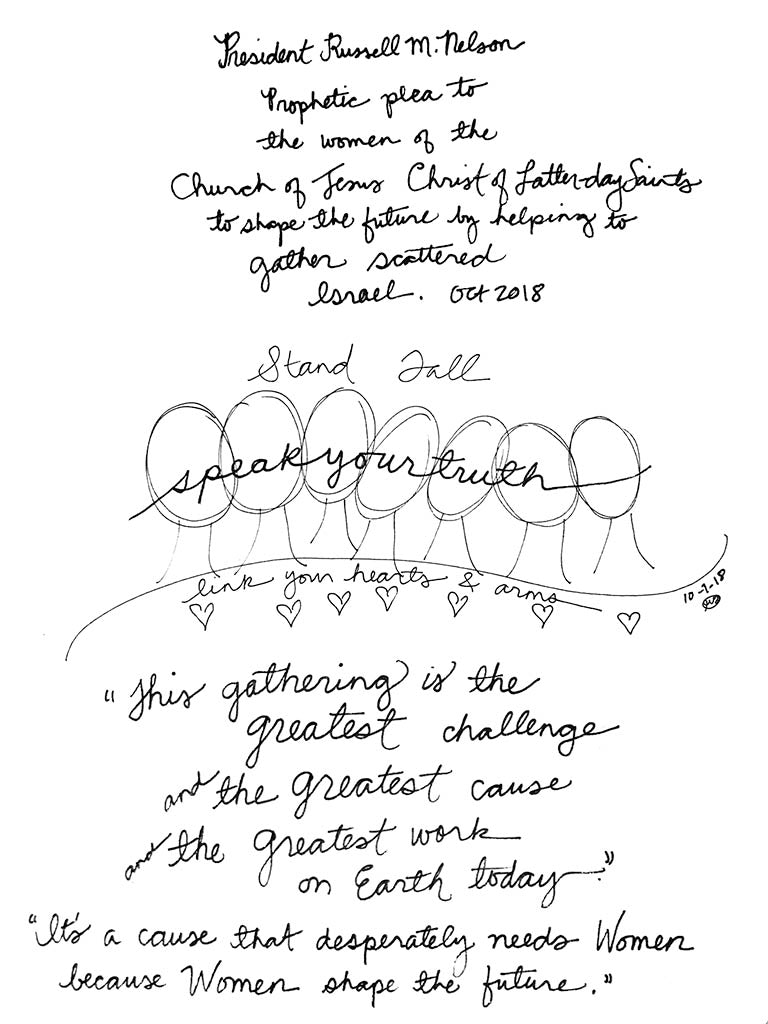 President Russell M. Nelson
Prophetic plea to
the women of the
Church of Jesus Christ of Latter-day Saints
to shape the future by helping to
gather scattered
Israel. Oct 2018
Stand Tall
speak your truth
link your hearts & arms
10-7-18
"This gathering is the
greatest challenge
and the greatest cause
and the greatest work
on Earth today."
"It's a cause that desperately needs Women
because Women shape the future."